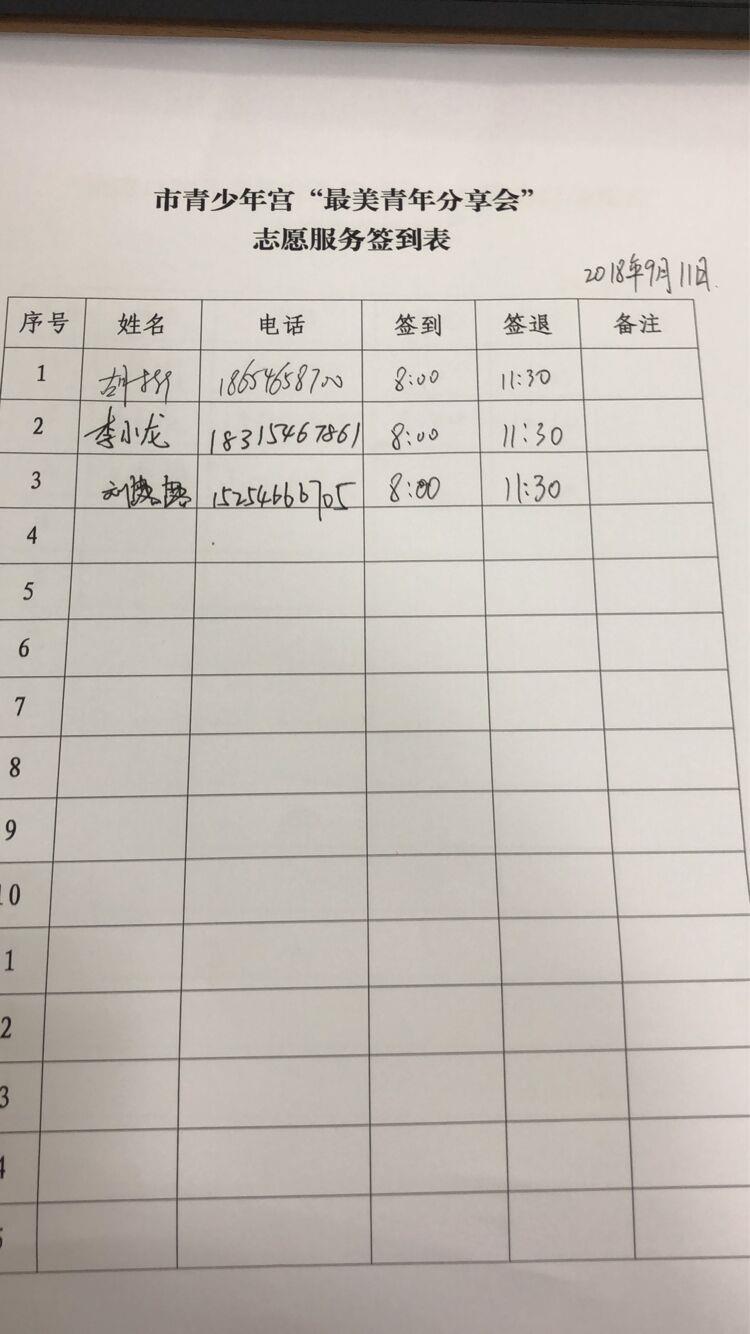 市青少年宫“最美青年分享会”
志愿服务签到表
2018年9月11日
序号 姓名 电话 签到 签退 备注
1 18654658700 8:00 11:30
2 李小龙 18315467861 8:00 11:30
3 刘 15254666705 8:00 11:30
4
5
6
7
8
9
10
1
2
3
4
5